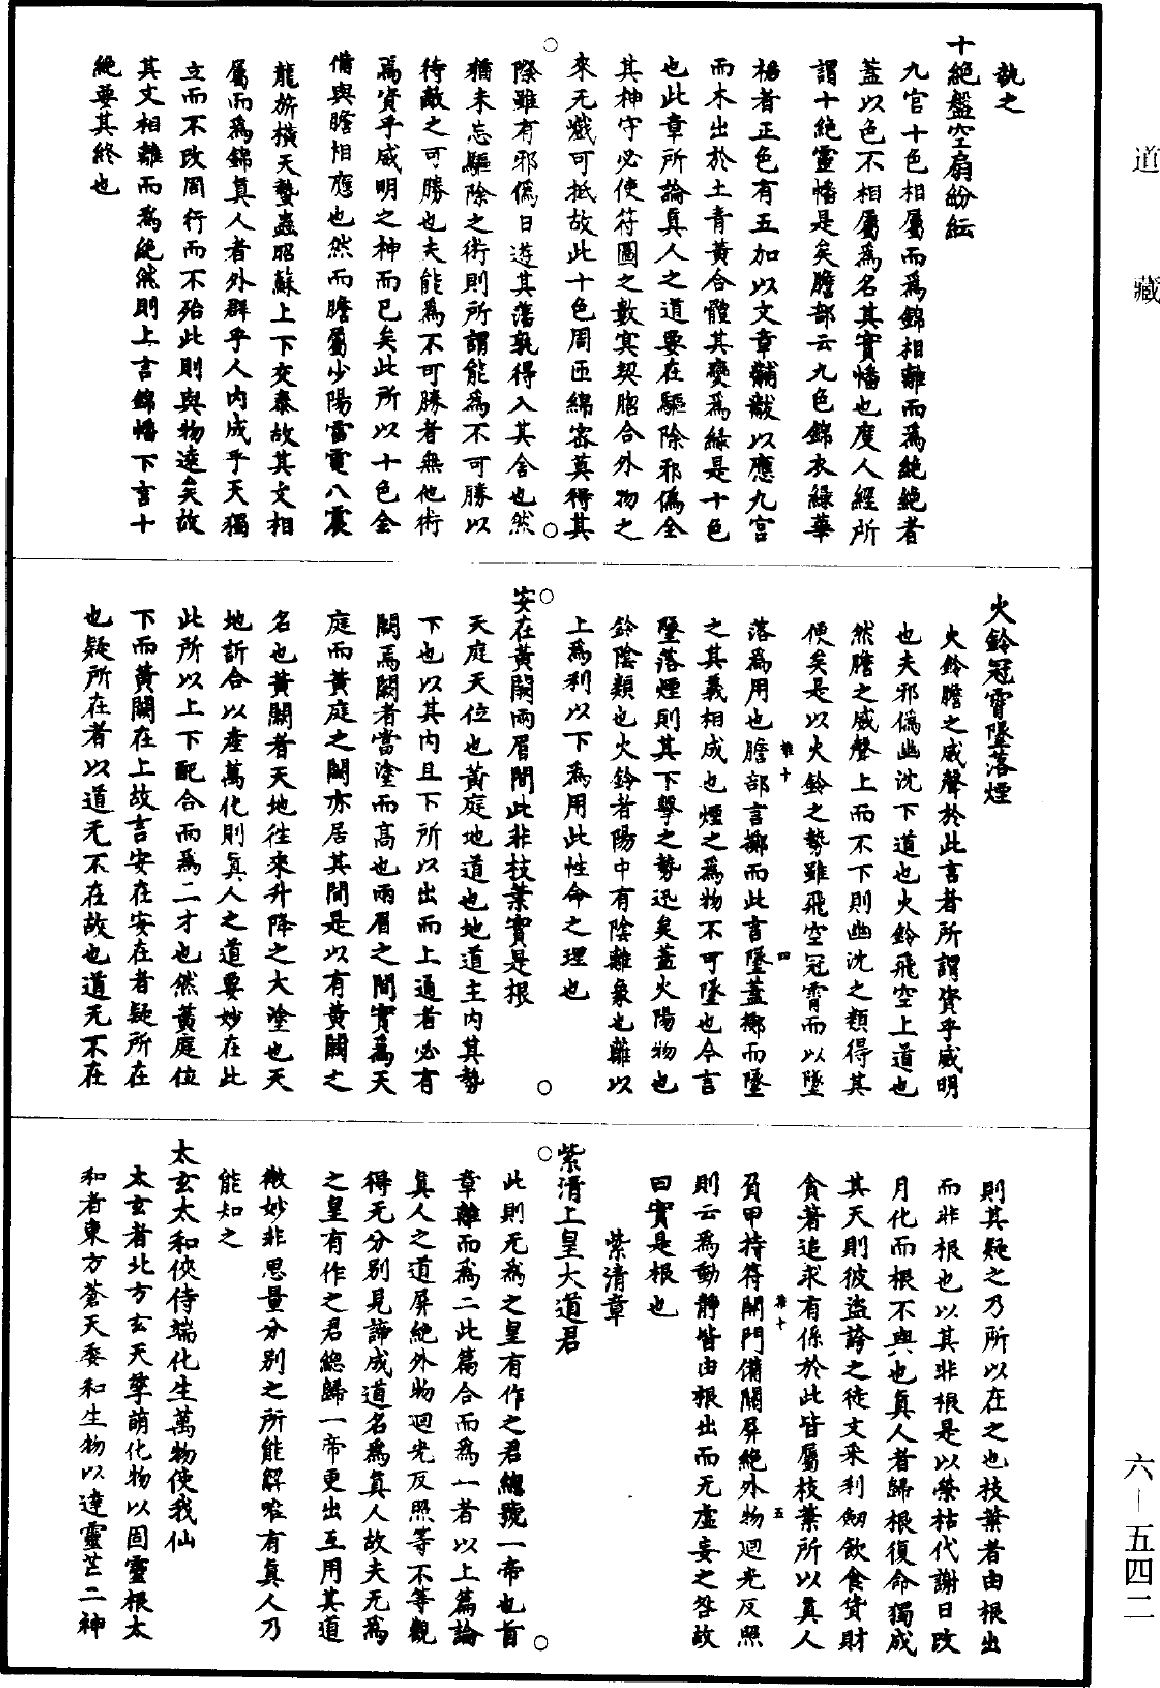 道藏
六-五四二
執之
十絕盤空扇紛紜
九官十色相屬而為錦相離而為絕絕者
蓋以色不相屬為名其實幡也度人經所
謂十絕靈幡是矣膽部云九色錦衣綠華
裙者正色有五加以文章黼黻以應九宮
而木出於土青黃合體其變為綠是十色
也此章所論真人之道要在驅除邪偽全
其神守必使符圖之數冥契脗合外物之
來无巇可抵故此十色周匝綿密莫得其
隙雖有邪偽日遊其藩孰得入其舍也然
猶未忘驅除之術則所謂能為不可勝以
待敵之可勝也夫能為不可勝者無他術
焉資乎威明之神而已矣此所以十色全
備與膽相應也然而膽屬少陽雷電八震
龍旂橫天蟄蟲昭蘇上下交泰故其文相
屬而為錦真人者外群乎人內成乎天獨
立而不改周行而不殆此則與物違矣故
其文相離而為絕然則上言錦幡下言十
絕要其終也
火鈴冠霄墜落煙
火鈴膽之威聲於此言者所謂資乎威明
也夫邪偽幽沈下道也火鈴飛空上道也
然膽之威聲上而不下則幽沈之類得其
便矣是以火鈴之勢雖飛空冠霄而以墜
落為用也膽部言擲而此言墜蓋擲而墜
之其義相成也煙之為物不可墜也今言
墜落煙則其下擊之勢迅矣蓋火陽物也
鈴陰類也火鈴者陽中有陰離象也離以
上為利以下為用此性命之理也
安在黃闕兩眉間此非枝葉實是根
天庭天位也黃庭地道也地道主內其勢
下也以其內且下所以出而上通者必有
闕焉闕者當塗而高也兩眉之間實為天
庭而黃庭之闕亦居其間是以有黃闕之
名也黃闕者天地往來升降之大塗也天
地訢合以產萬化則真人之道要妙在此
此所以上下配合而為二才也然黃庭位
下而黃闕在上故言安在安在者疑所在
也疑所在者以道无不在故也道无不在
則其疑之乃所以在之也枝葉者由根出
而非根也以其非根是以榮枯代謝日改
月化而根不與也真人者歸根復命獨成
其天則彼盜誇之徒文采利劒飲食貨財
貪著追求有係於此皆屬枝葉所以真人
負甲持符開門備關屏絕外物迴光反照
則云為動靜皆由根出而无虛妄之咎故
曰實是根也
紫清章
紫清上皇大道君
此則无為之皇有作之君總號一帝也首
章離而為二此篇合而為一者以上篇論
真人之道屏絕外物迴光反照等不等觀
得无分別見諦成道名為真人故夫无為
之皇有作之君總歸一帝更出互用其道
微妙非思量分別之所能解唯有真人乃
能知之
太玄太和俠侍端化生萬物使我仙
太玄者北方玄天孳萌化物以固靈根太
和者東方蒼天委和生物以達靈芒二神